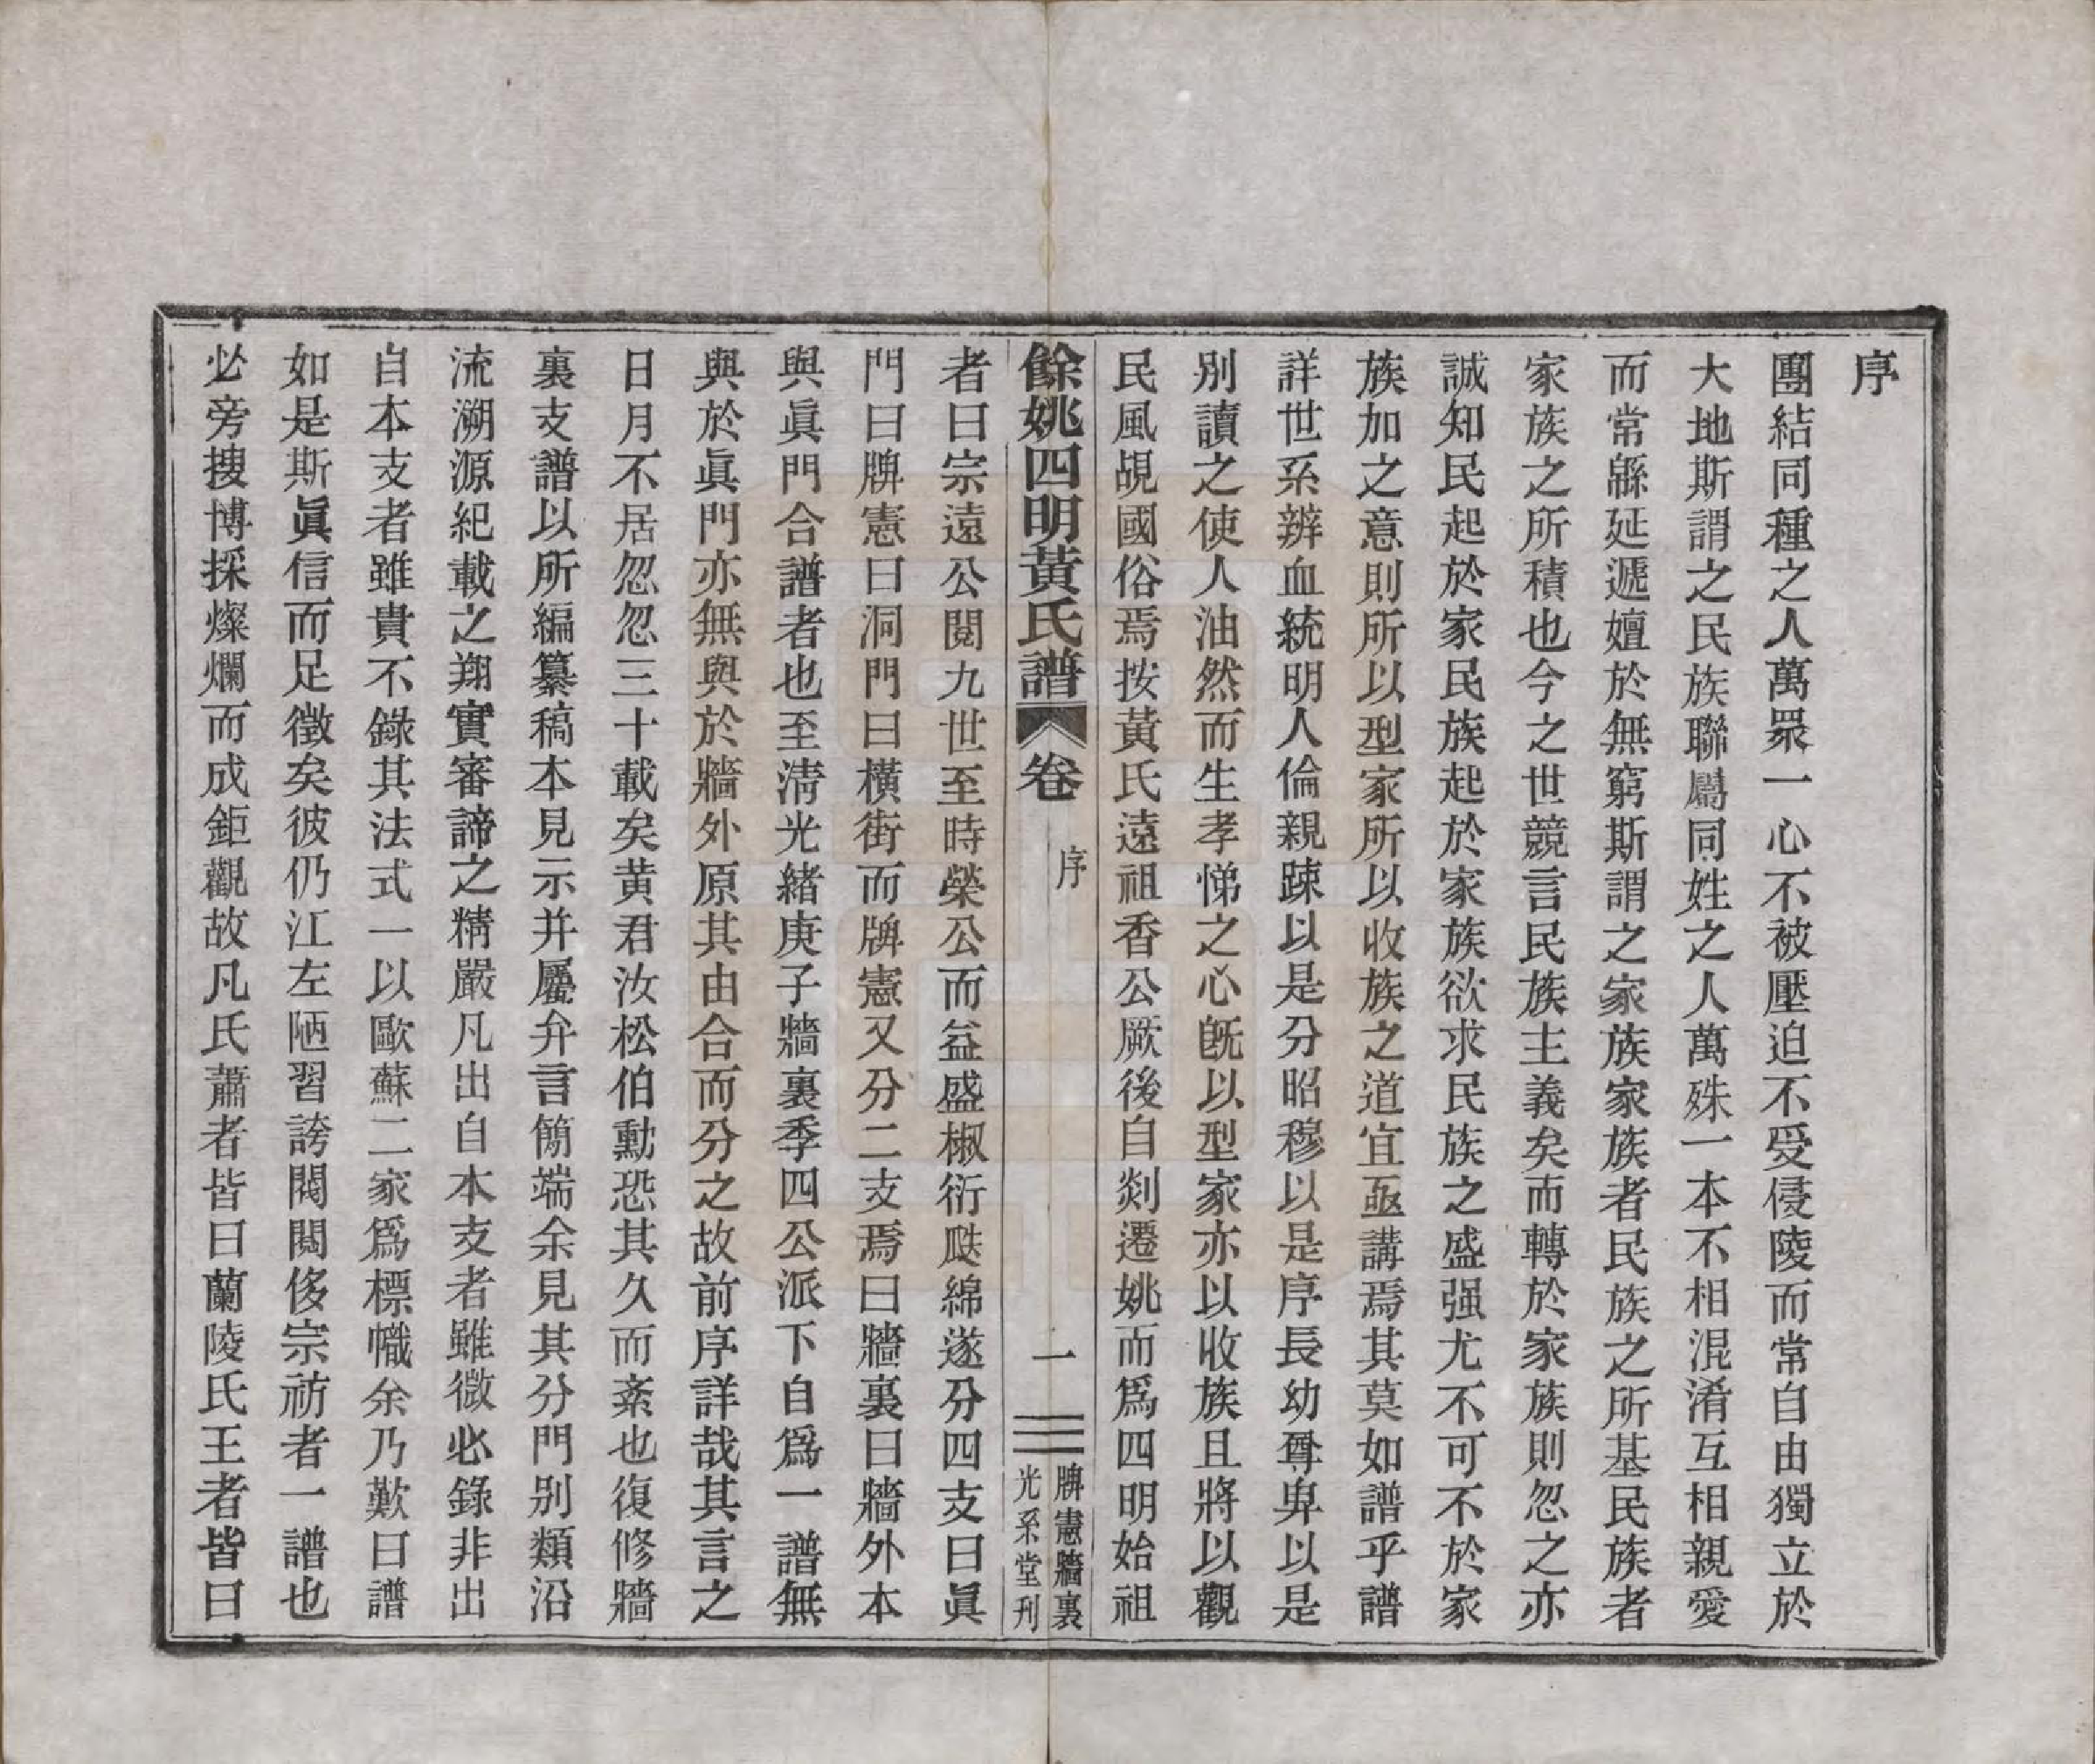 序
團結同種之人萬眾一心不被壓迫不受侵陵而常自由獨立於
大地斯謂之民族聯屬同姓之人萬殊一本不相混淆互相親愛
而常緜延遞嬗於無窮斯謂之家族家族者民族之所基民族者
家族之所積也今之世競言民族主義矣而轉於家族則忽之亦
誠知民起於家民族起於家族欲求民族之盛强尤不可不於家
族加之意則所以型家所以收族之道宜亟講焉其莫如譜乎譜
詳世系辨血統明人倫親踈以是分昭穆以是序長幼尊卑以是
別讀之使人油然而生孝悌之心旣以型家亦以收族且將以觀
民風覘國俗焉按黃氏遠祖香公厥後自剡遷姚而爲四明始祖
餘姚四明黃氏譜 卷 序 一 牌憲牆裏 光系堂刊
者曰宗遠公閱九世至時榮公而益盛椒衍瓞綿遂分四支曰眞
門曰牌憲曰洞門曰橫街而牌憲又分二支焉曰牆裏曰牆外本
與眞門合譜者也至淸光緒庚子牆裏季四公派下自爲一譜無
與於眞門亦無與於牆外原其由合而分之故前序詳哉其言之
日月不居忽忽三十載矣黃君汝松伯勳恐其久而紊也復修牆
裏支譜以所編纂稿本見示并屬弁言簡端余見其分門別類沿
流溯源紀載之翔實審諦之精嚴凡出自本支者雖微必錄非出
自本支者雖貴不錄其法式一以歐蘇二家爲標幟余乃歎曰譜
如是斯眞信而足徵矣彼仍江左陋習誇閥閱侈宗祊者一譜也
必旁搜博採燦爛而成鉅觀故凡氏蕭者皆曰蘭陵氏王者皆曰